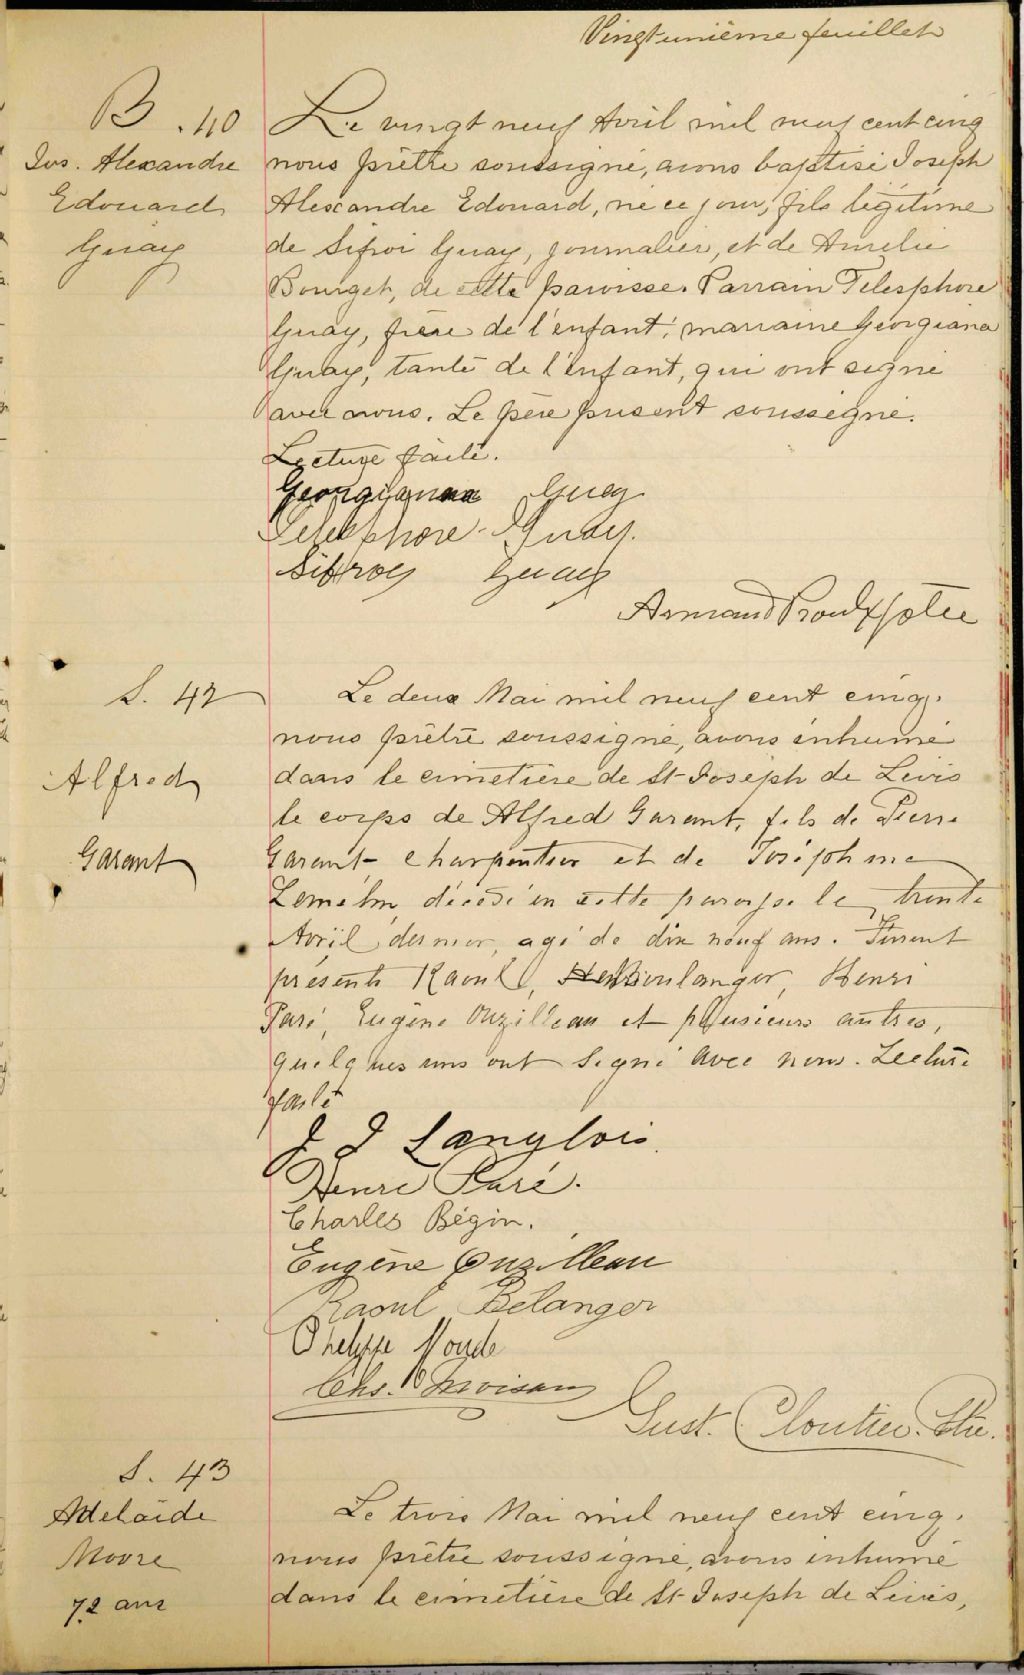 Vingt unième feuillet
B. 40
Jos. Alexandre
Edouard
Guay
Le vingt neuf Avril mil neuf cent cinq
nous prêtre soussigné, avons baptisé Joseph
Alexandre Edouard, né ce jour, fils légitime
de Sifroi Guay, journalier, et de Amélie
Bourget, de cette paroisse. Parrain Telesphore
Guay, frère de l'enfant; marraine Georgiana
Guay, tante de l'enfant, qui ont signé
avec nous. Le père présent soussigné.
Lecture faite.
Georgianna Guay
Telesphore Guay.
Sifroy Guay
Armand Proulx ptre
S. 42
Alfred
Garant
Le deux Mai mil neuf cent cinq,
nous prêtre soussigné, avons inhumé
dans le cimetière de St Joseph de Lévis
le corps de Alfred Garant, fils de Pierre
Garant charpentier et de Joséphine
Lemelin, décédé en cette paroisse le trente
Avril dernier, agé de dix neuf ans. Furent
présents Raoul, Boulanger, Henri
Paré, Eugène Ouzilleau et plusieurs autres,
quelques uns ont signé avec nous. Lecture
faite
J J Langlois.
Henri Paré.
Charles Bégin.
Eugène Ouzilleau
Raoul Bélanger
Philippe Houde
Chs. Moisan
Gust. Cloutier. Ptre.
S. 43
Adelaïde
Moore
72 ans
Le trois Mai mil neuf cent cinq,
nous prêtre soussigné, avons inhumé
dans le cimetière de St Joseph de Lévis,